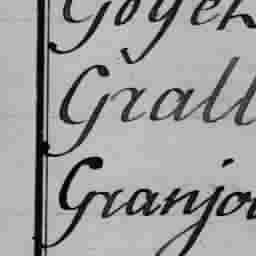 Goyen
Grall
Granjo